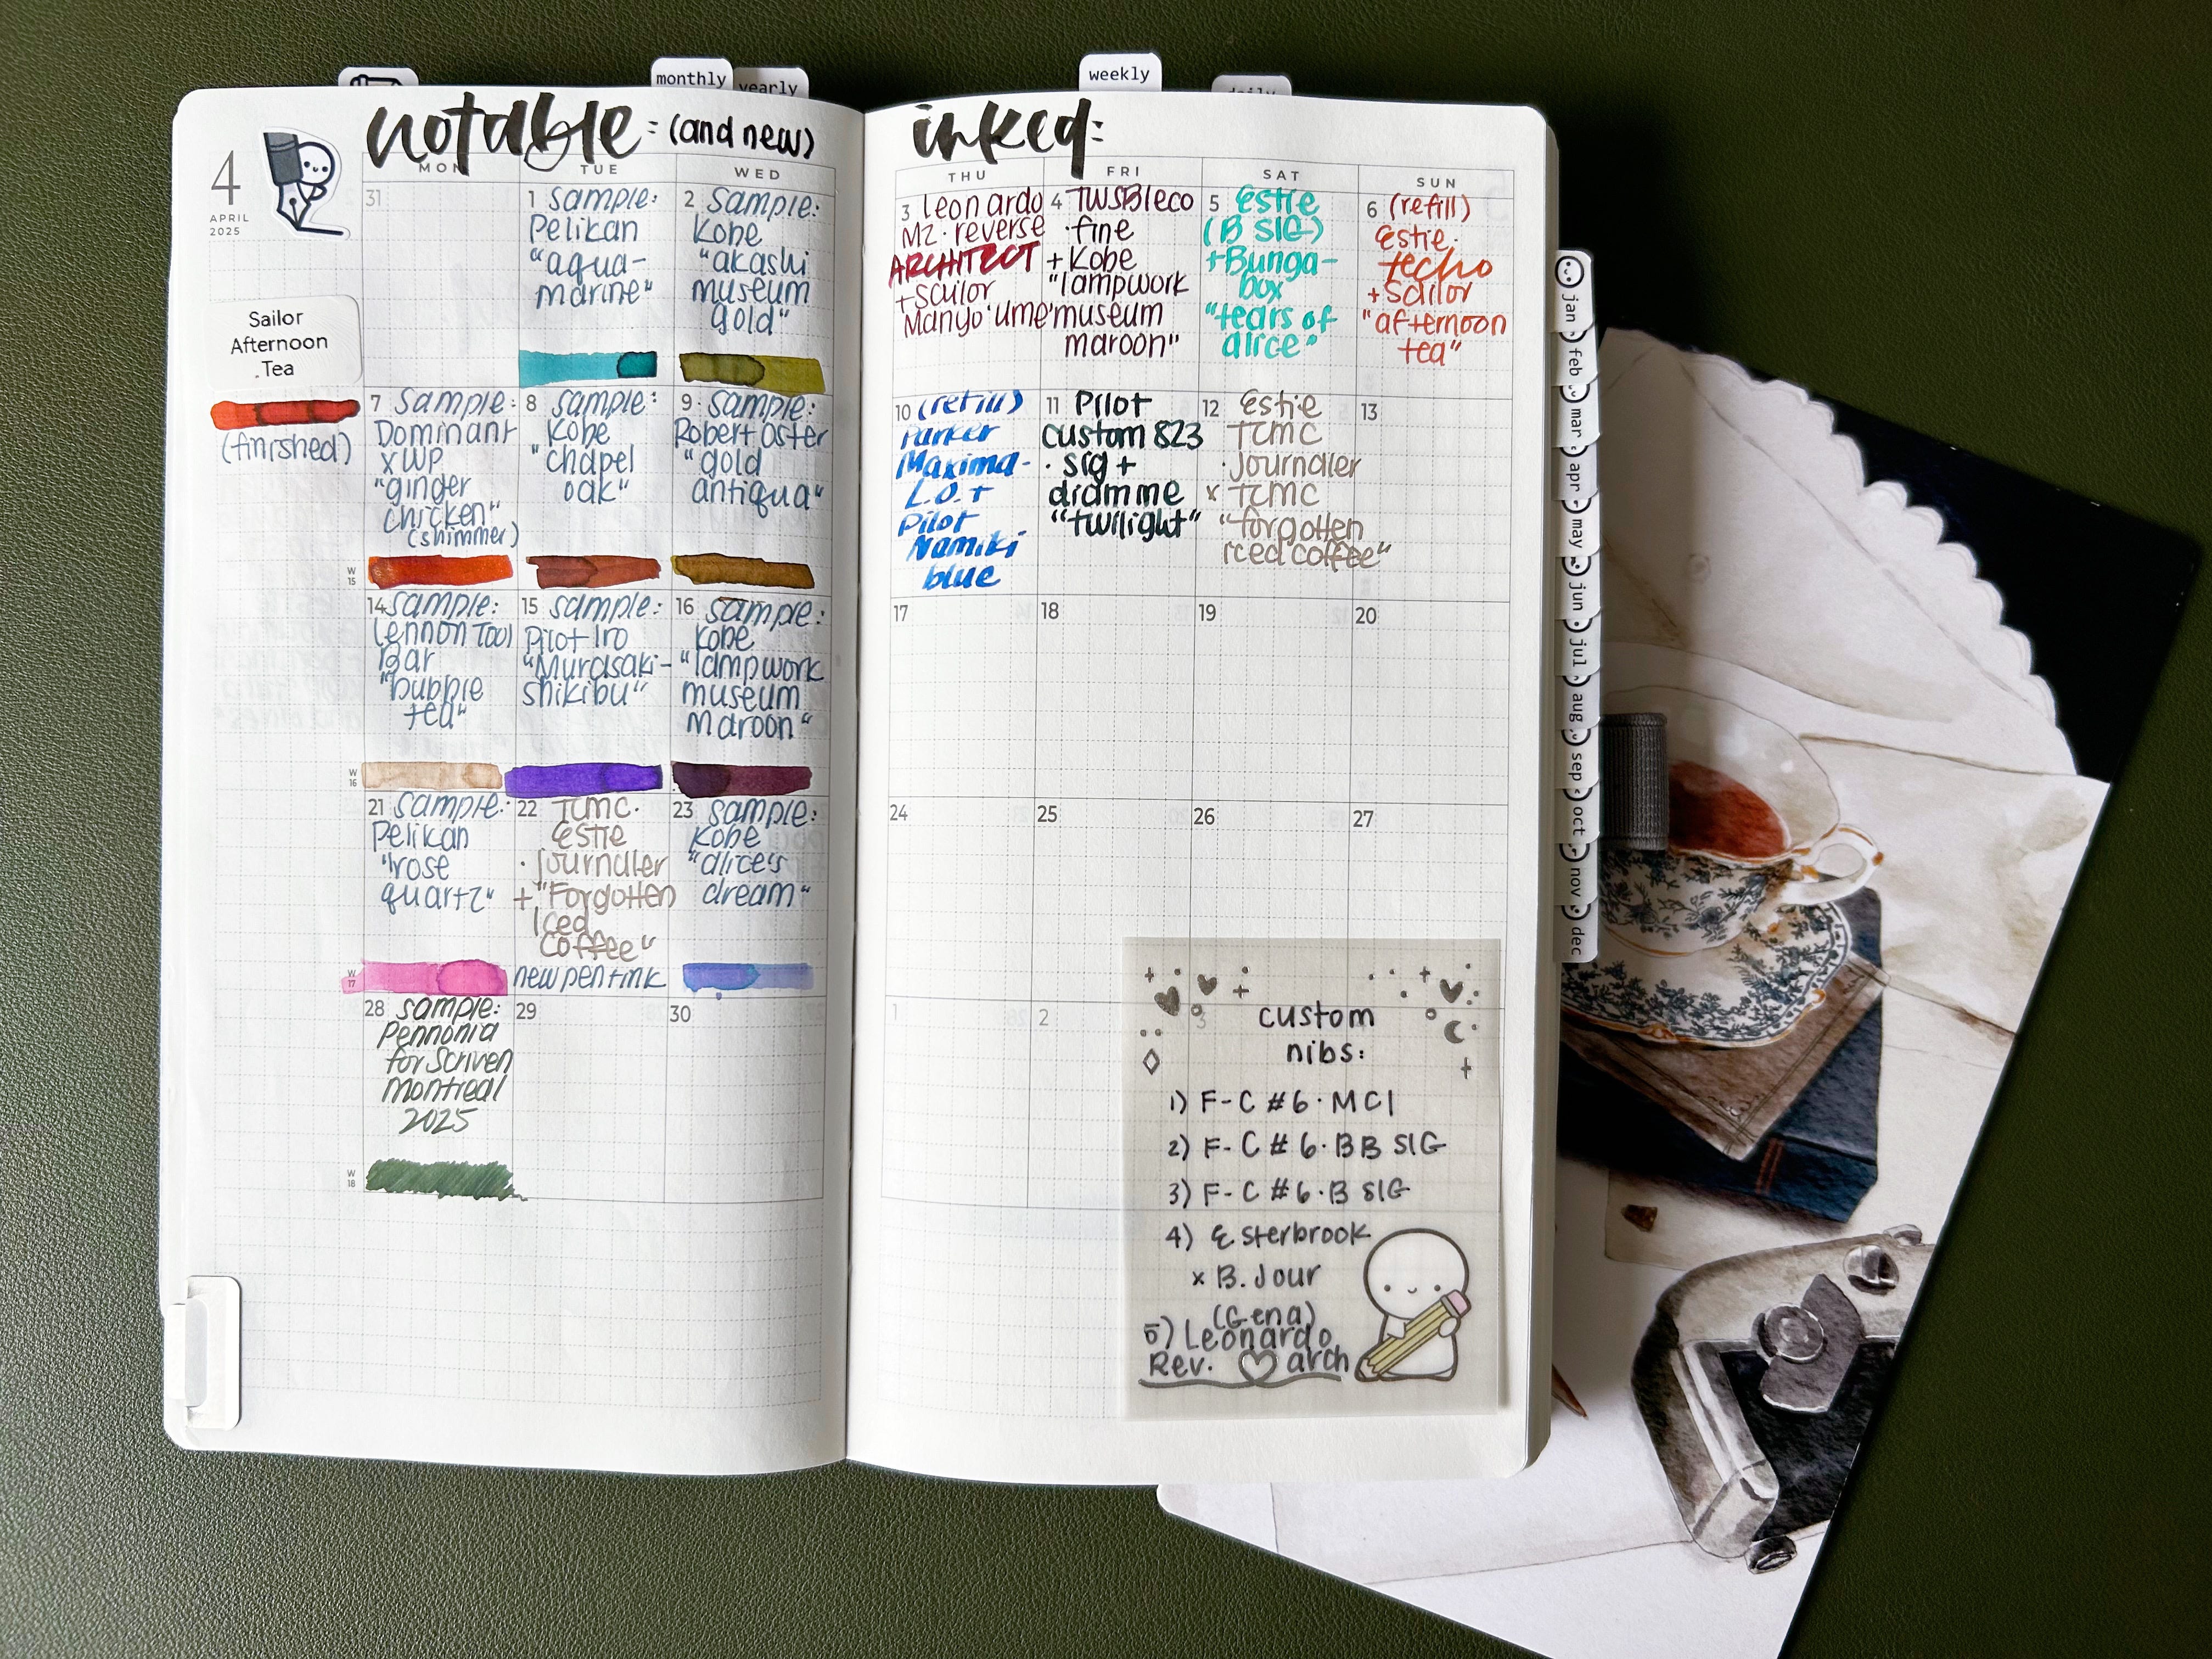 monthly
yearly
weekly
daily
notable: (and new)
inked:
4
APRIL
2025
MON
TUE
WED
THU
FRI
SAT
SUN
31
1 sample:
Pelikan
"aqua-
marine"
2 sample:
Kobe
"akashi
museum
gold"
3 leonardo
MZ · reverse
ARCHITECT
+ sailor
Manyo 'ume'
4 TWSBI eco
· fine
+ Kobe
"lampwork
museum
maroon"
5 Estie
(B SIG)
+ Bunga-
box
"tears of
alice"
6 (refill)
Estie ·
techo
+ sailor
"afternoon
tea"
Sailor
Afternoon
Tea
(finished)
7 sample:
Dominant
x WP
"ginger
chicken"
(shimmer)
8 sample:
Kobe
"chapel
oak"
9 sample:
Robert Oster
"gold
antiqua"
10 (refill)
Parker
Maxima-
L.O. +
Pilot
Namiki
blue
11 Pilot
custom 823
· sig +
dramme
"twilight"
12 Estie
TCMC
· journaler
x TCMC
"forgotten
iced coffee"
13
W
15
14 sample:
Lennon Tool
Bar
"bubble
tea"
15 sample:
Pilot Iro
"Murasaki-
shikibu"
16 sample:
Kobe
"lampwork
museum
maroon"
17
18
19
20
W
16
21 sample:
Pelikan
"rose
quartz"
22 TCMC ·
Estie
· journaler
+ "Forgotten
Iced
Coffee"
new pen + ink
23 sample:
Kobe
"alice's
dream"
24
25
26
27
W
17
28 sample:
Pennonia
for Scriven
Montreal
2025
29
30
1
2
3
W
18
custom
nibs:
1) F-C #6 · MCI
2) F-C #6 · BB SIG
3) F-C #6 · B SIG
4) Esterbrook
x B. Jour
(Gena)
5) Leonardo
Rev. arch
jan
feb
mar
apr
may
jun
jul
aug
sep
oct
nov
dec